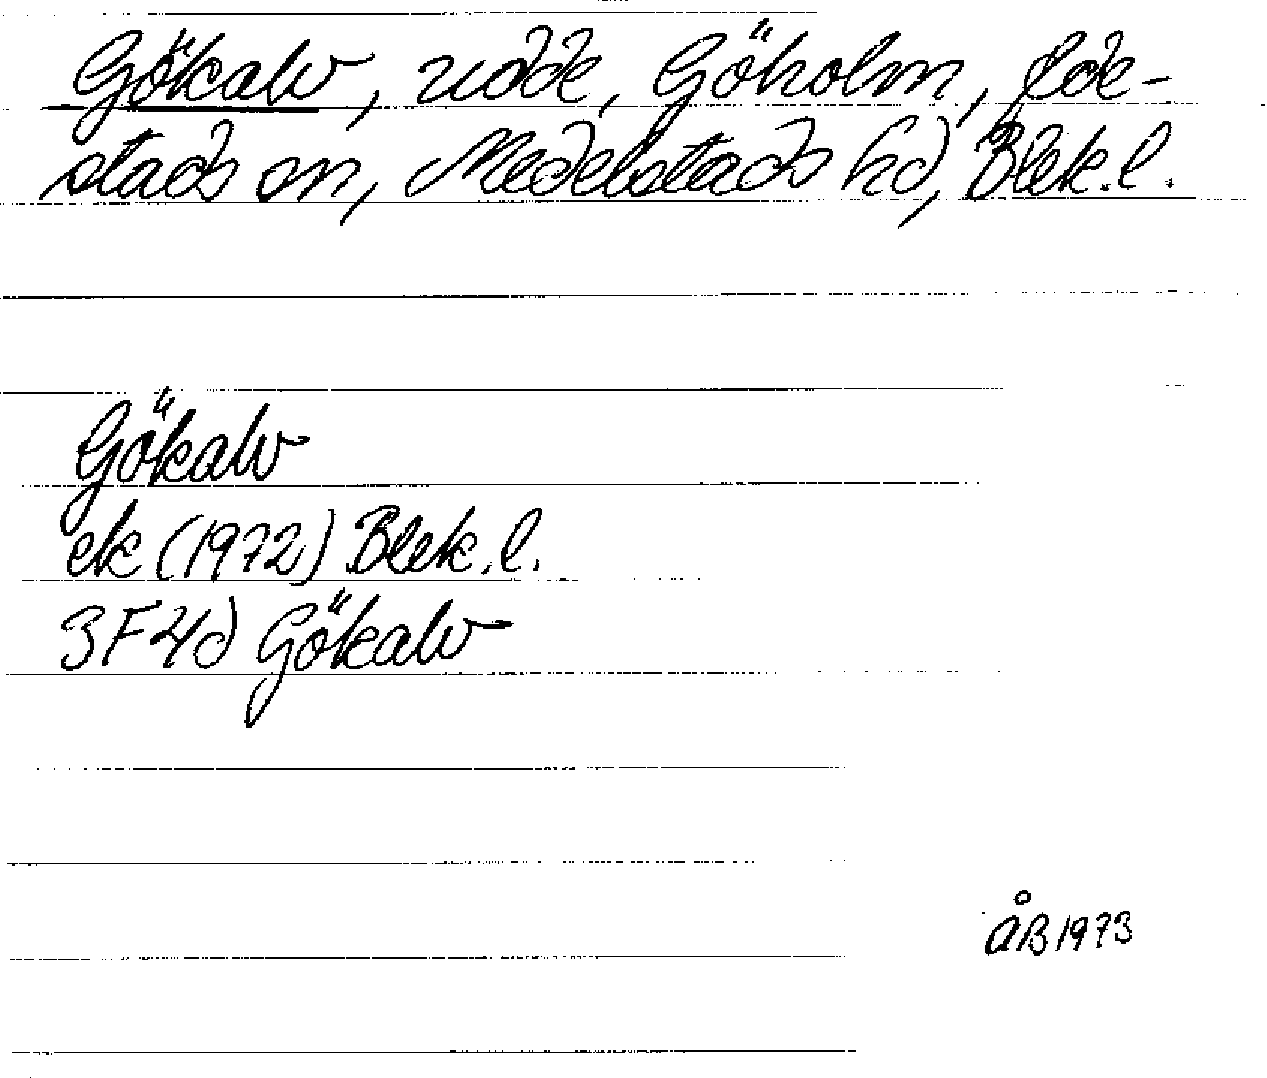 Gökalv, udde, Göholm, Ede-
stads sn, Medelstads hd, Blek.l.
Gökalv
ek (1972) Blek.l.
3F4d Gökalv
ÅB 1973